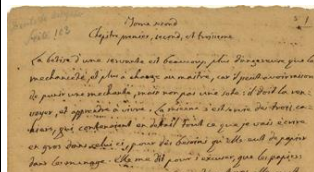 Tome second
1
Chapitre premier, second, et troisieme
La bêtise d'une servante est beaucoup plus dangereuse que la
mechanceté, et plus a charge au maitre, car il peut avoir raison
de punir une mechante, mais non pas une sote: il doit la ren-
voyer, et apprendre à vivre. La mienne s'est servie des trois ca-
hiers, qui contenoient en détail tout ce que je vais écrire
en gros dans celui ci, pour des besoins qu'elle eut de papier
dans son menage. Elle me dit pour s'excuser, que les papiers